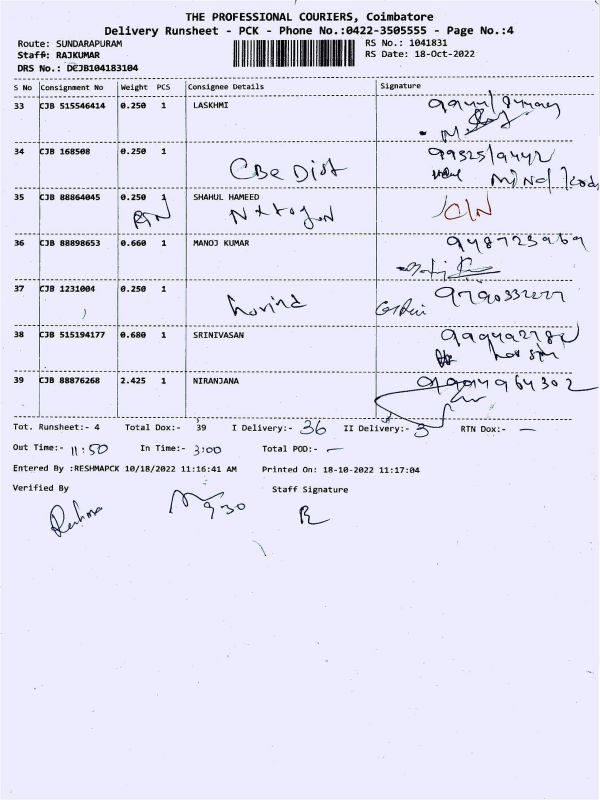 THE PROFESSIONAL COURIERS, Coimbatore
Delivery Runsheet - PCK - Phone No.:0422-3505555 - Page No.:4
Route: SUNDARAPURAM RS No.: 1041831
Staff: RAJKUMAR RS Date: 18-Oct-2022
DRS No.: DCJB104183104
S No Consignment No Weight PCS Consignee Details Signature
33 CJB 515546414 0.250 1 LASKHMI
34 CJB 168508 0.250 1
CBE Dist
35 CJB 88864045 0.250 1 SHAHUL HAMEED
C/N
36 CJB 88898653 0.660 1 MANOJ KUMAR
37 CJB 1231004 0.250 1
38 CJB 515194177 0.680 1 SRINIVASAN
39 CJB 88876268 2.425 1 NIRANJANA
Tot. Runsheet:- 4 Total Dox:- 39 I Delivery:- 36 II Delivery:- 3 RTN Dox:- —
Out Time:- 11:50 In Time:- 3:00 Total POD:- —
Entered By :RESHMAPCK 10/18/2022 11:16:41 AM Printed On: 18-10-2022 11:17:04
Verified By Staff Signature